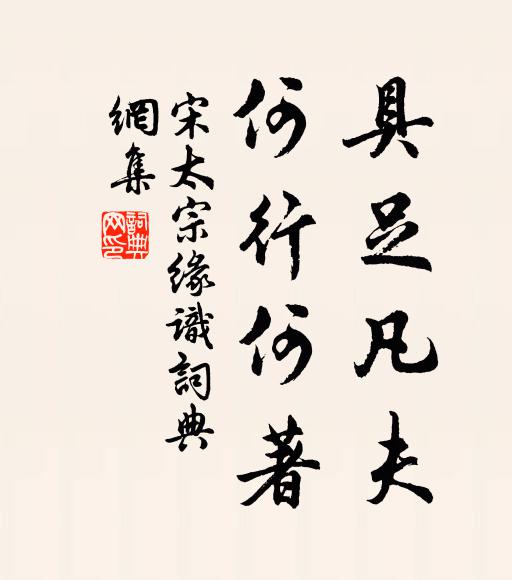 具足凡夫
何行何著
宋太宗緣識詞典
網集
詞典
网印